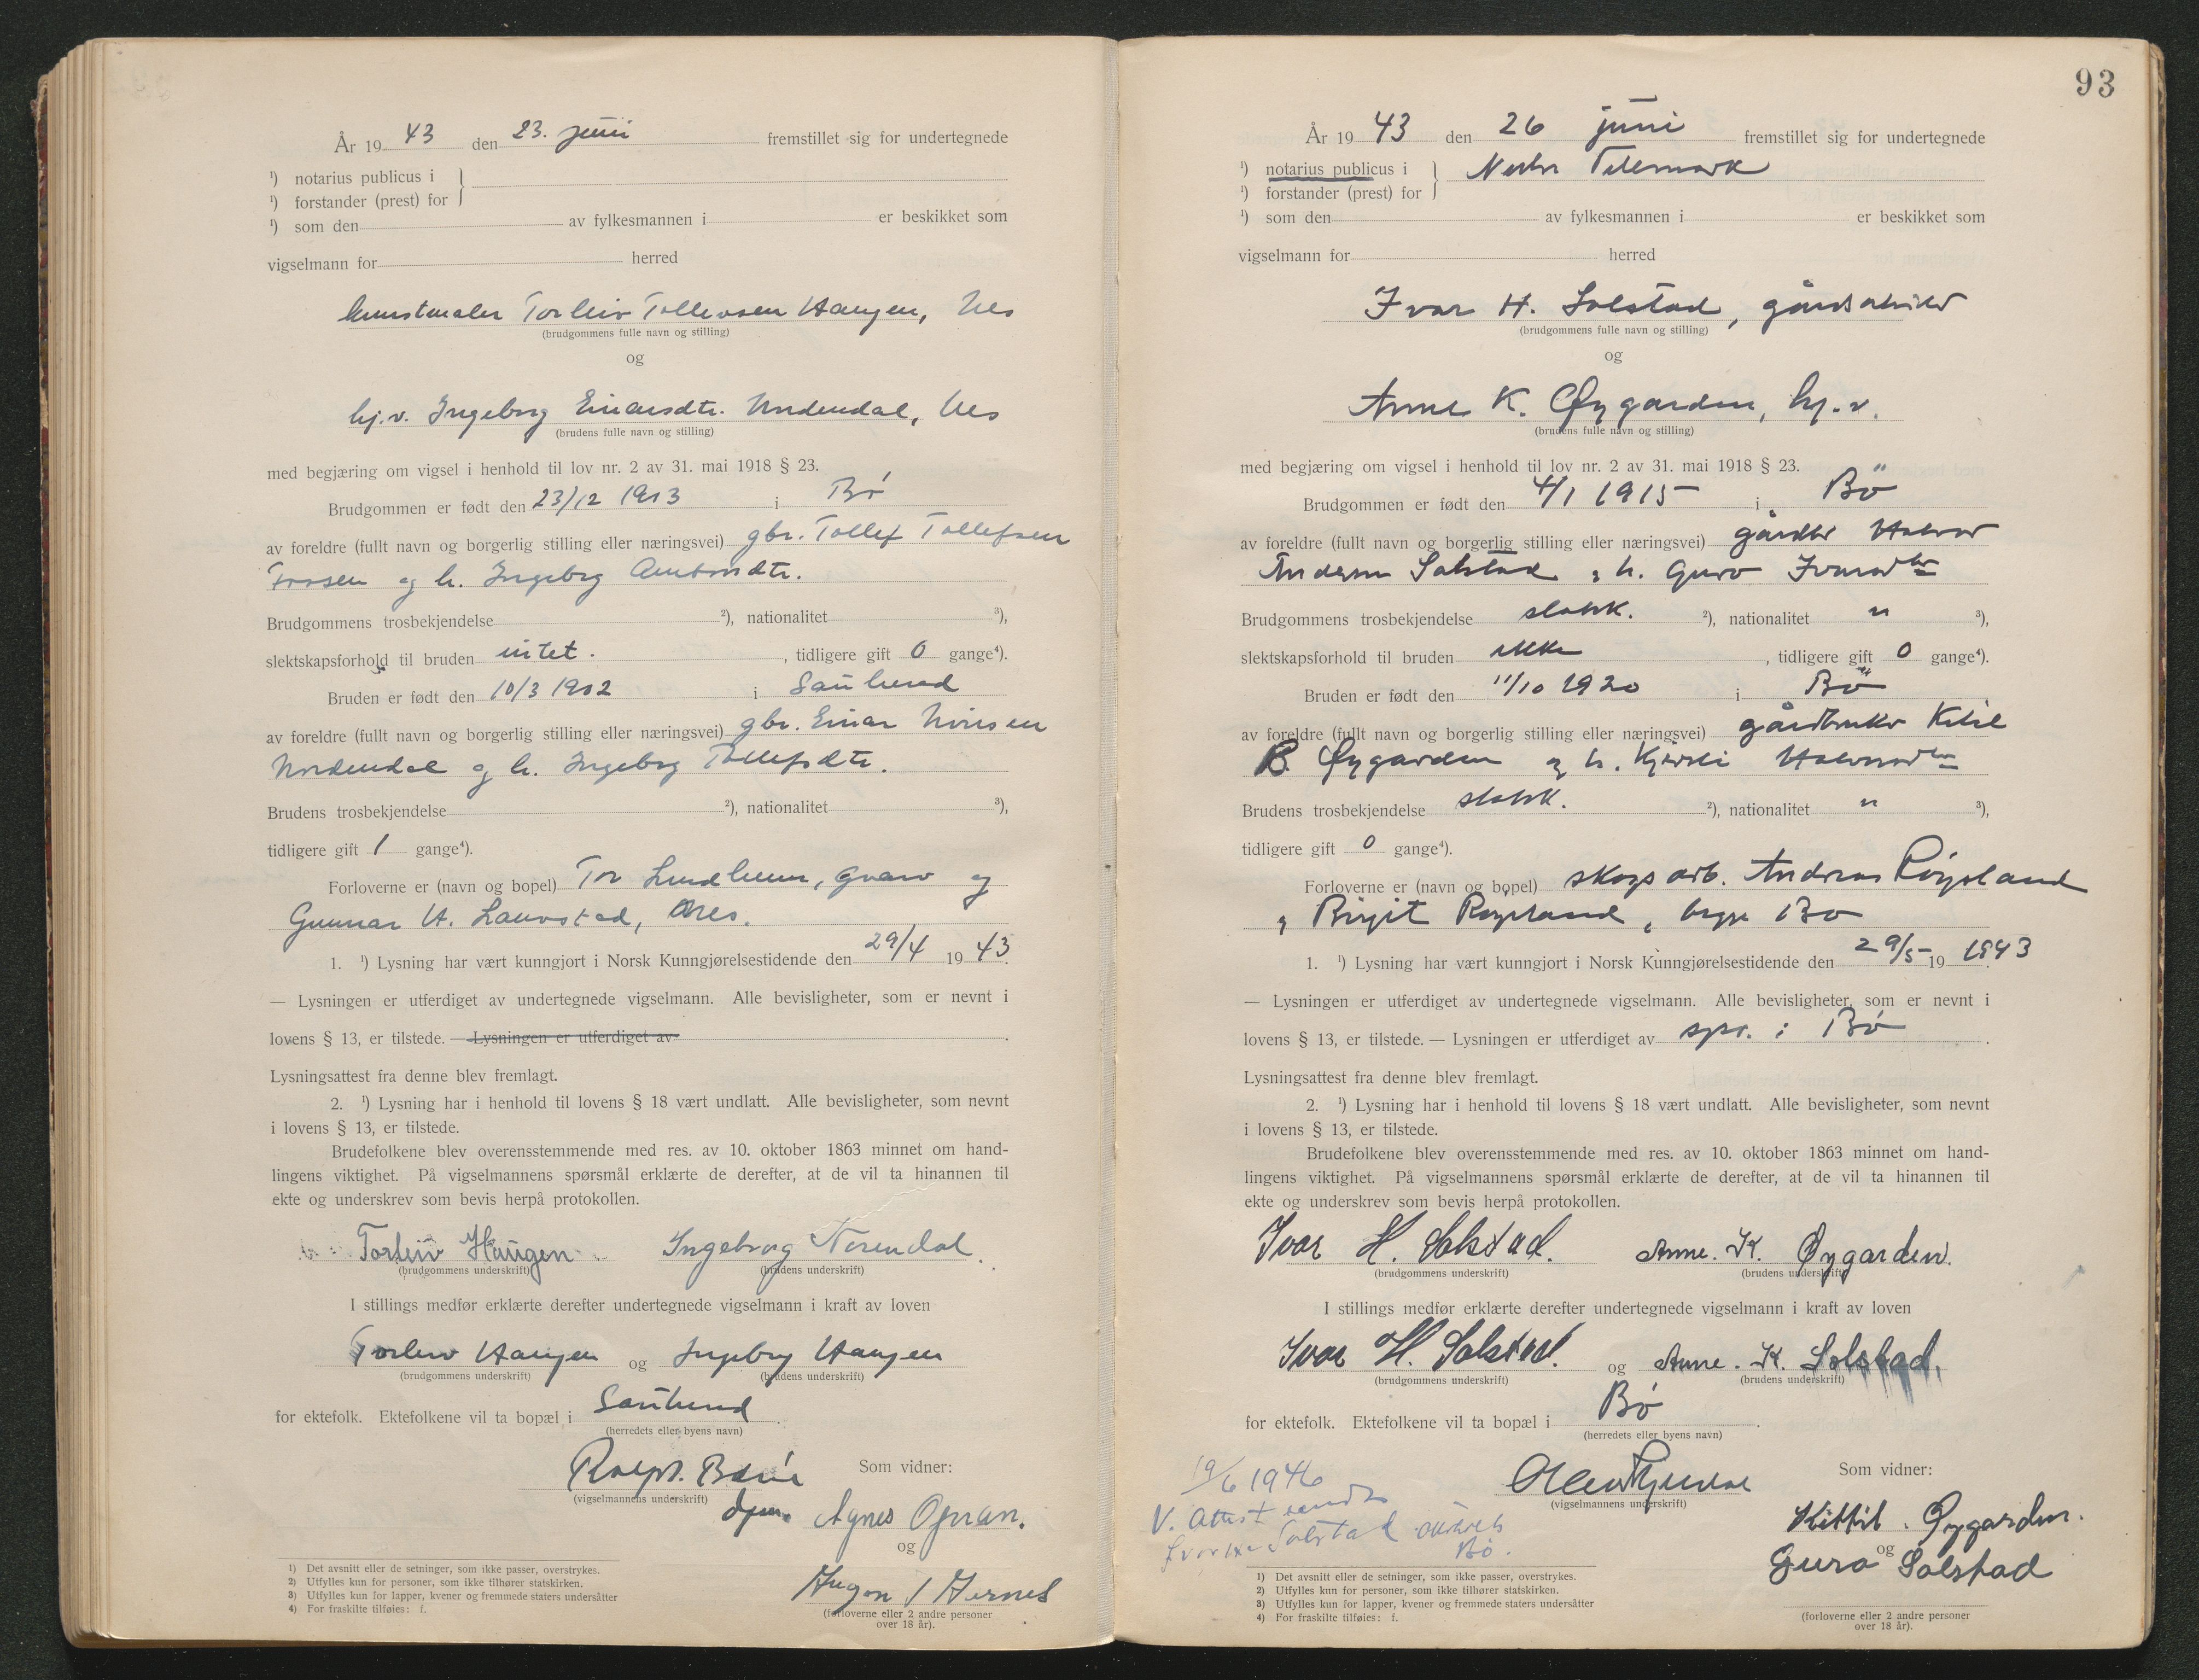 År 19 43 den 23. juni fremstillet sig for undertegnede
¹) notarius publicus i
¹) forstander (prest) for
¹) som den av fylkesmannen i er beskikket som
vigselmann for herred
kunstmaler Torleiv Tollevsen Haugen, Nes
(brudgommens fulle navn og stilling)
og
hj.v. Ingeborg Einarsdtr. Nordendal, Nes
(brudens fulle navn og stilling)
med begjæring om vigsel i henhold til lov nr. 2 av 31. mai 1918 § 23.
Brudgommen er født den 23/12 1903 i Bø
av foreldre (fullt navn og borgerlig stilling eller næringsvei) gbr. Tollef Tollefsen
og h. Ingeborg
Brudgommens trosbekjendelse ²), nationalitet ³),
slektskapsforhold til bruden intet. , tidligere gift 0 gange⁴).
Bruden er født den 10/3 1902 i Sauherad
av foreldre (fullt navn og borgerlig stilling eller næringsvei) gbr. Einar
Nordendal og h. Ingeborg Tollefsdtr.
Brudens trosbekjendelse ²), nationalitet ³),
tidligere gift 1 gange⁴).
Forloverne er (navn og bopel) Tor Lindheim, Gvarv og
Gunnar H. Lauvstad, Nes.
1. ¹) Lysning har vært kunngjort i Norsk Kunngjørelsestidende den 29/4 19 43.
— Lysningen er utferdiget av undertegnede vigselmann. Alle bevisligheter, som er nevnt i
lovens § 13, er tilstede. — Lysningen er utferdiget av
Lysningsattest fra denne blev fremlagt.
2. ¹) Lysning har i henhold til lovens § 18 vært undlatt. Alle bevisligheter, som nevnt
i lovens § 13, er tilstede.
Brudefolkene blev overensstemmende med res. av 10. oktober 1863 minnet om hand-
lingens viktighet. På vigselmannens spørsmål erklærte de derefter, at de vil ta hinannen til
ekte og underskrev som bevis herpå protokollen.
Torleiv Haugen Ingeborg Norendal.
(brudgommens underskrift) (brudens underskrift)
I stillings medfør erklærte derefter undertegnede vigselmann i kraft av loven
Torleiv Haugen og Ingeborg Haugen
(brudgommens underskrift) (brudens underskrift)
for ektefolk. Ektefolkene vil ta bopæl i Sauherad.
(herredets eller byens navn)
Som vidner:
(vigselmannens underskrift)
Agnes
og
Hernes
(forloverne eller 2 andre personer
over 18 år).
1) Det avsnitt eller de setninger, som ikke passer, overstrykes.
2) Utfylles kun for personer, som ikke tilhører statskirken.
3) Utfylles kun for lapper, kvener og fremmede staters undersåtter
4) For fraskilte tilføies: f.
93
År 19 43 den 26 juni fremstillet sig for undertegnede
¹) notarius publicus i Nedre Telemark
¹) forstander (prest) for
¹) som den av fylkesmannen i er beskikket som
vigselmann for herred
Ivar H. Solstad, gårdsarbeider
(brudgommens fulle navn og stilling)
og
Anne K. Øygarden, hj.v.
(brudens fulle navn og stilling)
med begjæring om vigsel i henhold til lov nr. 2 av 31. mai 1918 § 23.
Brudgommen er født den 4/1 1915 i Bö
av foreldre (fullt navn og borgerlig stilling eller næringsvei) gårdbr Halvor
Andersen Solstad og h. Guro Ivarsdtr
Brudgommens trosbekjendelse statsk. ²), nationalitet n ³),
slektskapsforhold til bruden ikke , tidligere gift 0 gange⁴).
Bruden er født den 11/10 1920 i Bö
av foreldre (fullt navn og borgerlig stilling eller næringsvei) gårdbruker Kitil
B. Øygarden og h. Kjersti Halvorsdtr
Brudens trosbekjendelse statsk. ²), nationalitet n ³),
tidligere gift 0 gange⁴).
Forloverne er (navn og bopel) skogsarb. Andreas Røysland
og Birgit Røysland, begge Bø
1. ¹) Lysning har vært kunngjort i Norsk Kunngjørelsestidende den 29/5 19 1943
— Lysningen er utferdiget av undertegnede vigselmann. Alle bevisligheter, som er nevnt i
lovens § 13, er tilstede. — Lysningen er utferdiget av spr. i Bø.
Lysningsattest fra denne blev fremlagt.
2. ¹) Lysning har i henhold til lovens § 18 vært undlatt. Alle bevisligheter, som nevnt
i lovens § 13, er tilstede.
Brudefolkene blev overensstemmende med res. av 10. oktober 1863 minnet om hand-
lingens viktighet. På vigselmannens spørsmål erklærte de derefter, at de vil ta hinannen til
ekte og underskrev som bevis herpå protokollen.
Ivar H. Solstad. Anne. K. Øygarden.
(brudgommens underskrift) (brudens underskrift)
I stillings medfør erklærte derefter undertegnede vigselmann i kraft av loven
Ivar H. Solstad. og Anne. K. Solstad.
(brudgommens underskrift) (brudens underskrift)
for ektefolk. Ektefolkene vil ta bopæl i Bø.
(herredets eller byens navn)
Som vidner:
(vigselmannens underskrift)
19/6 1946
V. attest sendt
Ivar H. Solstad
Bø.
Kittil. Øygarden.
og
Guro Solstad
(forloverne eller 2 andre personer
over 18 år).
1) Det avsnitt eller de setninger, som ikke passer, overstrykes.
2) Utfylles kun for personer, som ikke tilhører statskirken.
3) Utfylles kun for lapper, kvener og fremmede staters undersåtter
4) For fraskilte tilføies: f.